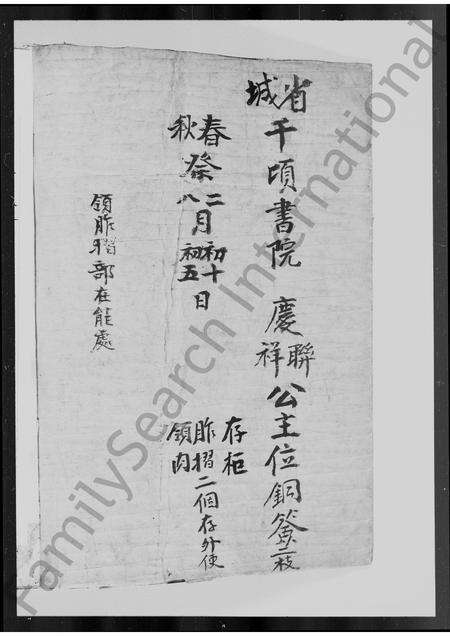 省城千頃書院 慶聯祥公主位銅簽二枝
春秋祭二八月初十初五日
存柜
領胙摺二個存外使
領胙摺部在能處
FamilySearch International